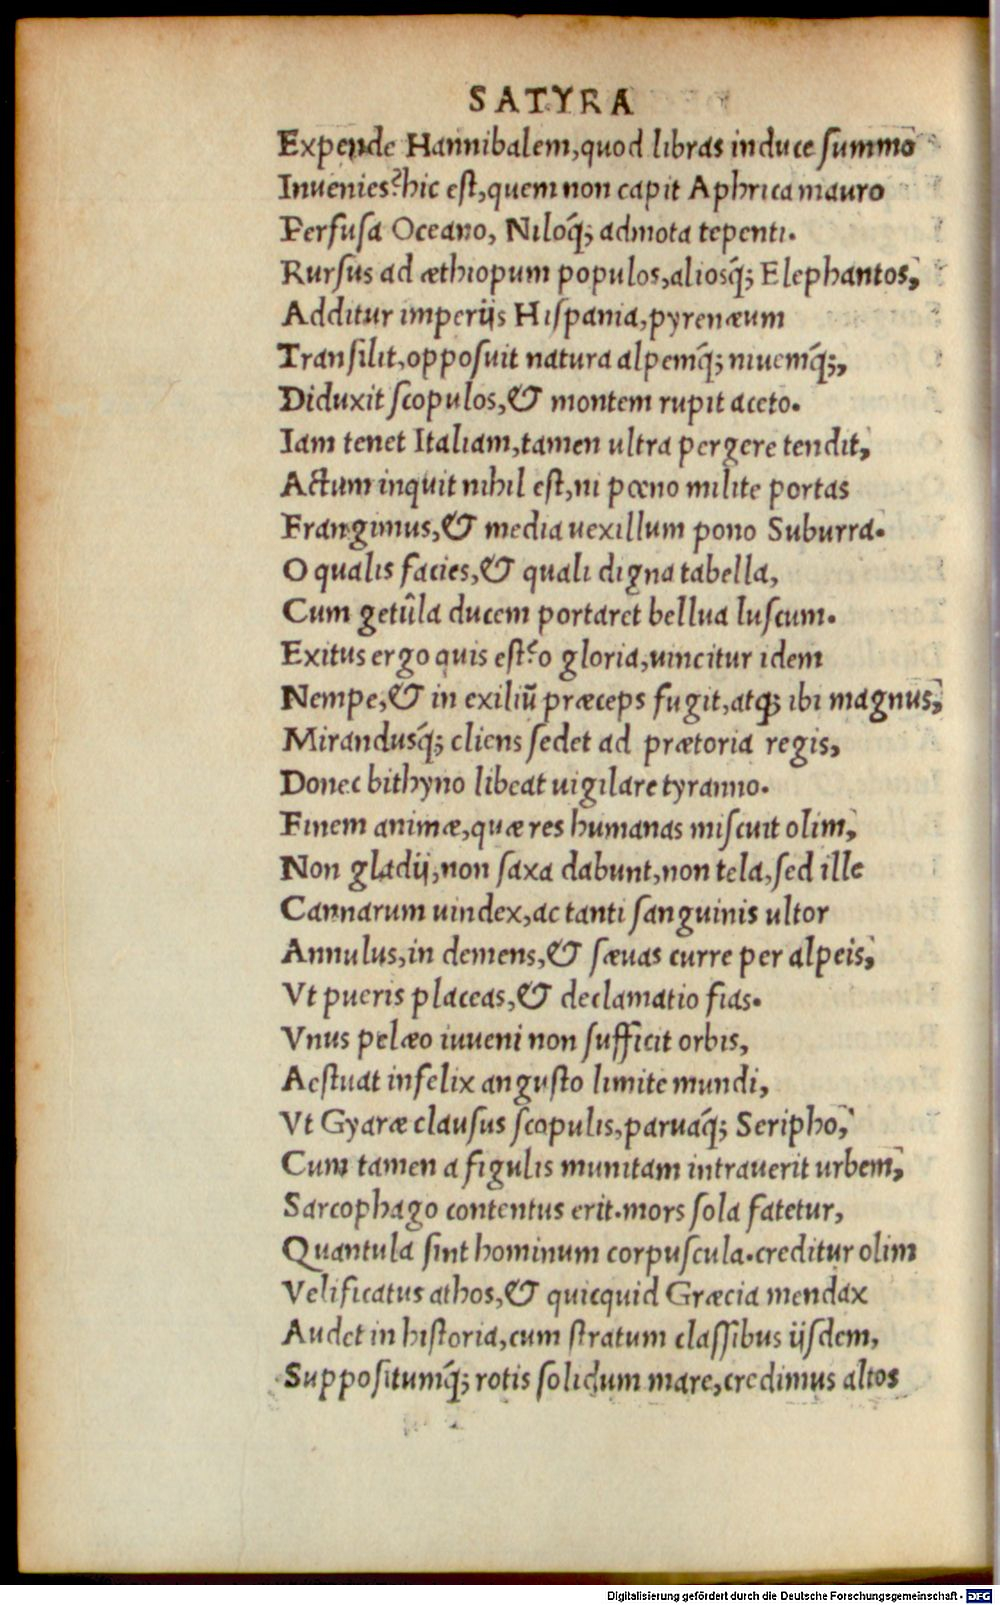 SATYRA
Expende Hannibalem, quod libras in duce summo
Inuenies? hic est, quem non capit Aphrica mauro
Perfusa Oceano, Niloq̃; admota tepenti.
Rursus ad æthiopum populos, aliosq̃; Elephantos,
Additur imperijs Hispania, pyrenæum
Transilit, opposuit natura alpemq̃; niuemq̃;,
Diduxit scopulos, & montem rupit aceto.
Iam tenet Italiam, tamen ultra pergere tendit,
Actum inquit nihil est, ni pœno milite portas
Frangimus, & media uexillum pono Suburra.
O qualis facies, & quali digna tabella,
Cum getûla ducem portaret bellua luscum.
Exitus ergo quis est? o gloria, uincitur idem
Nempe, & in exiliũ præceps fugit, atq; ibi magnus,
Mirandusq̃; cliens sedet ad prætoria regis,
Donec bithyno libeat uigilare tyranno.
Finem animæ, quæ res humanas miscuit olim,
Non gladij, non saxa dabunt, non tela, sed ille
Cannarum uindex, ac tanti sanguinis ultor
Annulus, in demens, & sæuas curre per alpeis,
Vt pueris placeas, & declamatio fias.
Vnus pelæo iuueni non sufficit orbis,
Aestuat infelix angusto limite mundi,
Vt Gyaræ clausus scopulis, paruaq̃; Seripho,
Cum tamen a figulis munitam intrauerit urbem,
Sarcophago contentus erit. mors sola fatetur,
Quantula sint hominum corpuscula. creditur olim
Velificatus athos, & quicquid Græcia mendax
Audet in historia, cum stratum classibus ijsdem,
Suppositumq̃; rotis solidum mare, credimus altos
Digitalisierung gefördert durch die Deutsche Forschungsgemeinschaft - DFG